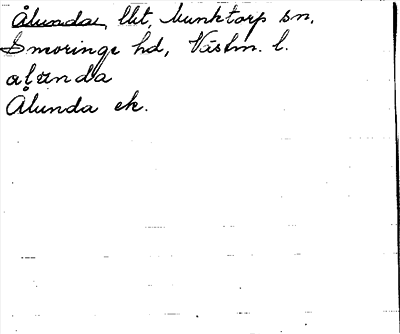 Ålunda, llt, Munktorp sn,
Snoringe hd, Västm. l.
alunda
Ålunda ek.